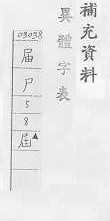 補充資料
異體字表
03038
届
尸
5
8